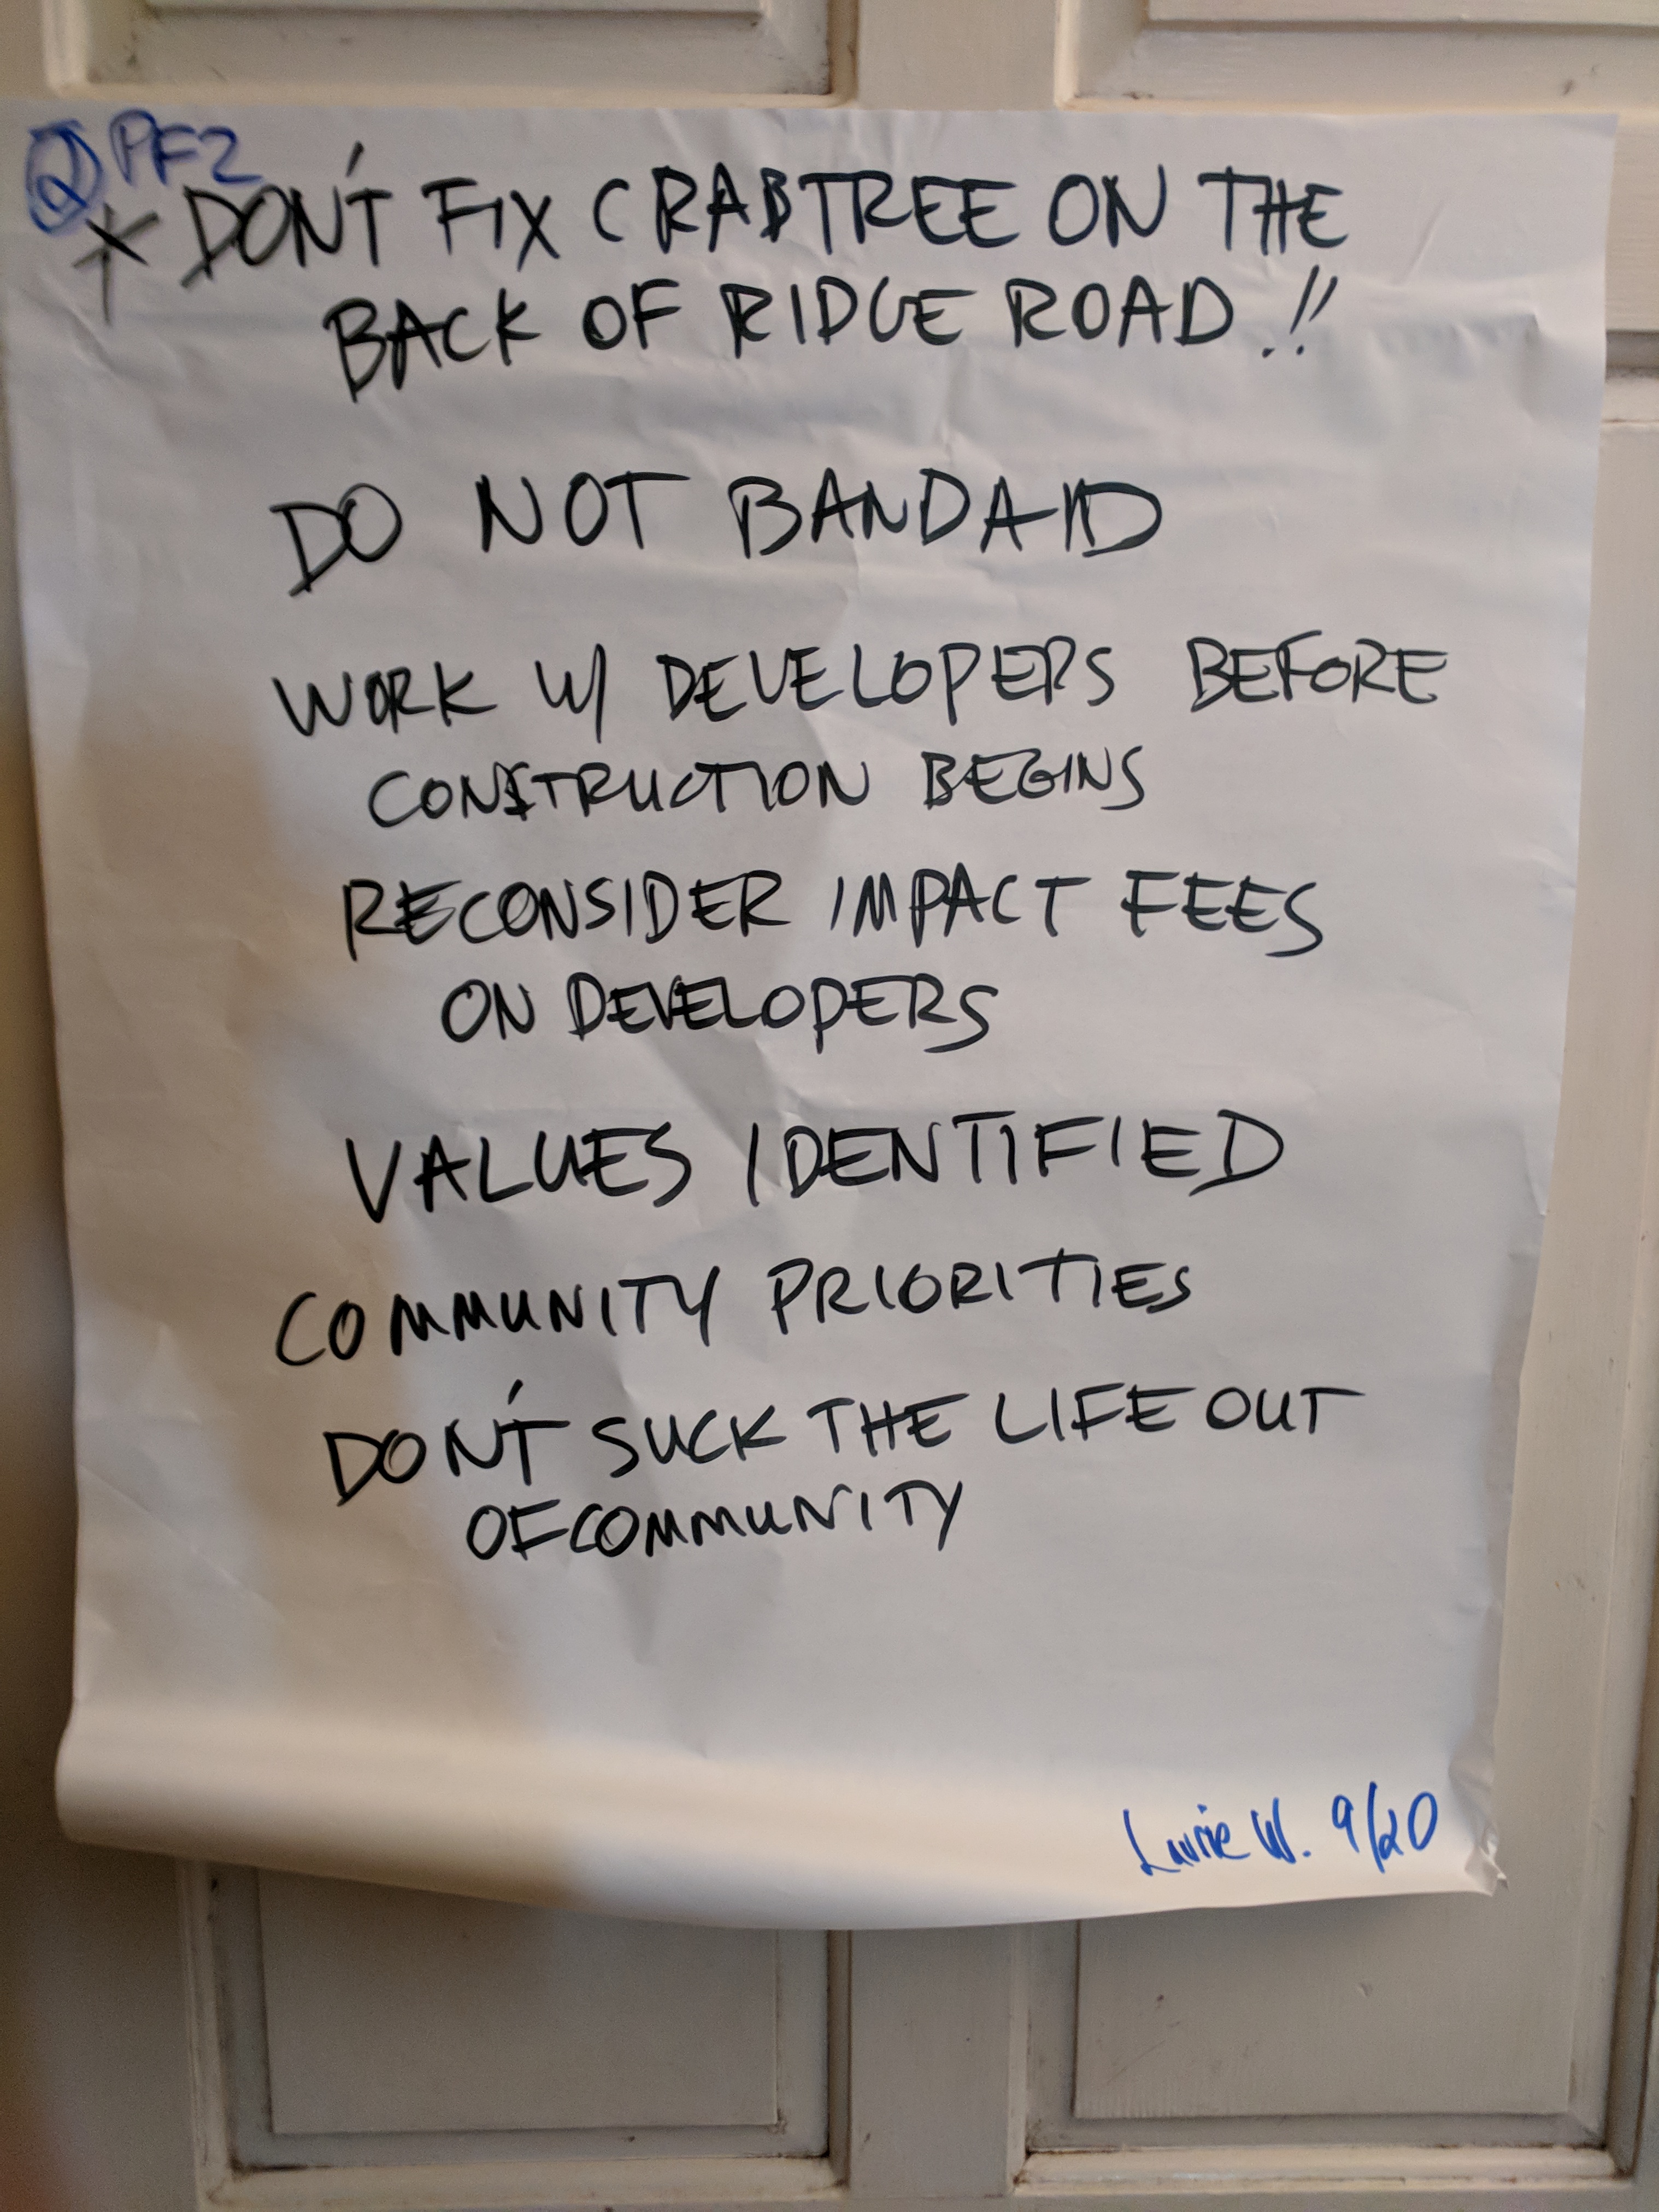 ② PF2
* DON'T FIX CRABTREE ON THE
BACK OF RIDGE ROAD!!
DO NOT BANDAID
WORK W/ DEVELOPERS BEFORE
CONSTRUCTION BEGINS
RECONSIDER IMPACT FEES
ON DEVELOPERS
VALUES IDENTIFIED
COMMUNITY PRIORITIES
DON'T SUCK THE LIFE OUT
OF COMMUNITY
Laurie W. 9/20